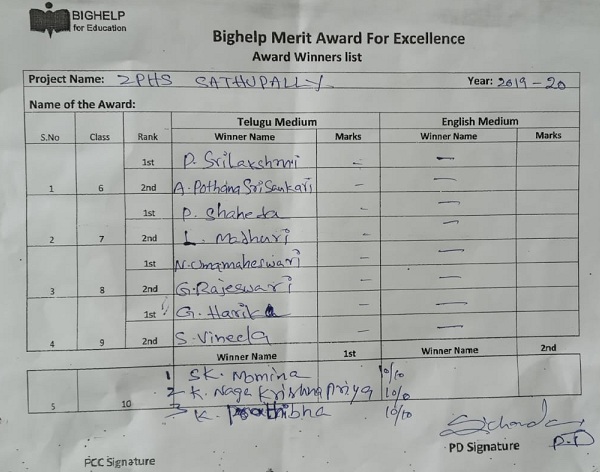 BIGHELP
for Education
Bighelp Merit Award For Excellence
Award Winners list
Project Name: ZPHS SATHUPALLY Year: 2019-20
Name of the Award:
Telugu Medium English Medium
S.No Class Rank Winner Name Marks Winner Name Marks
1st P. SriLakshmi - -
1 6 2nd A. Pothana Sri Sankari - -
1st P. Shaheda - -
2 7 2nd L. Madhuri - -
1st N. Umamaheswari - -
3 8 2nd G. Rajeswari - -
1st G. Harika - -
4 9 2nd S. Vineela - -
Winner Name 1st Winner Name 2nd
1 SK. Momina 10/10
2 K. Naga Krishna Priya 10/10
5 10 3 K. Prathibha 10/10
PD Signature P.D
PCC Signature